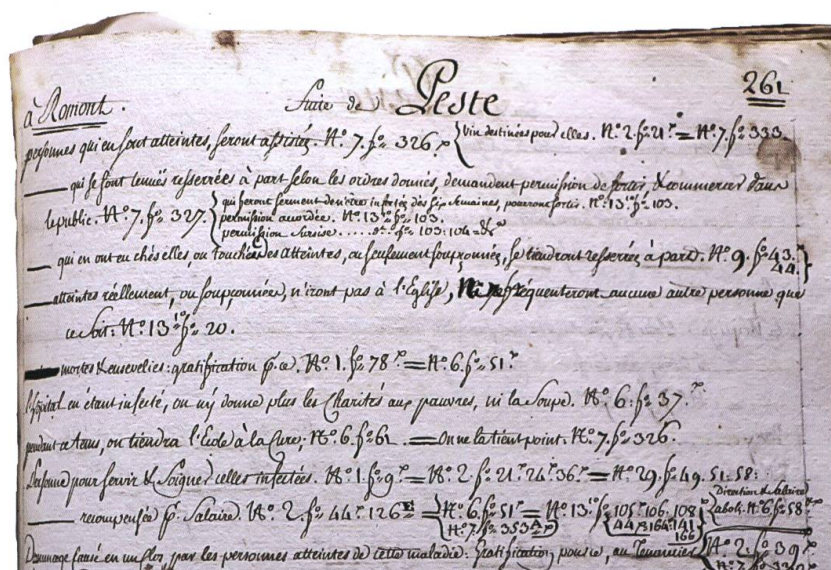 à Romont. Suite de Peste 261
personnes qui en sont atteintes, seront assistées. N.º 7. fº 326.vº { Vin destinées pour elles. N.º 2. fº 21.vº = N.º 7. fº 333.
___ qui se sont tenuës resserrées à part selon les ordres donnés, demandent permission de sortir, & commercer dans
le public. N.º 7. fº 327. { qui feront serment de n'être infectés dès six semaines, pourront sortir. N.º 13. fº 103.
permission accordée. N.º 13. fº 103.
permission sursise ..... dº fº 103: 104 = &
___ qui en ont eu chés elles, ou touché des atteintes, ou seulement soupçonnées, se tiendront resserrées à part. N.º 9. fº 43. 44. }
___ atteintes réellement, ou soupçonnées, n'iront pas à l'Eglise, fréquenteront aucune autre personne que
ce soit: N.º 13. fº 20.
___ mortes & ensevelies: gratification p.r ce. N.º 1. fº 78.vº = N.º 6. fº 51.vº
l'hôpital en étant infecté, on n'y donne plus les Charités aux pauvres, ni la Soupe. N.º 6. fº 37.vº
pendant ce tems, on tiendra l'Ecole à la Cure; N.º 6. fº 61. = On ne la tient point. N.º 7. fº 326.
Personne pour servir & Soigner celles infectées. N.º 1. fº 9.vº = N.º 2. fº 21.vº 24.vº 36.vº = N.º 29. fº 49. 51. 58:
___ recompensée p.r Salaire. N.º 2. fº 44.vº 126 = { N.º 6. fº 51.vº = N.º 13. fº 105.vº 106. 108 { Direction & Salaire aboli. N.º 6. fº 58.vº
N.º 7. fº 353 { 44. 164. 141
166
Dommage causé en un par les personnes atteintes de cette maladie: Gratification, pour ce, au Tenancier { N.º 2. fº 39.vº
N.º 7.